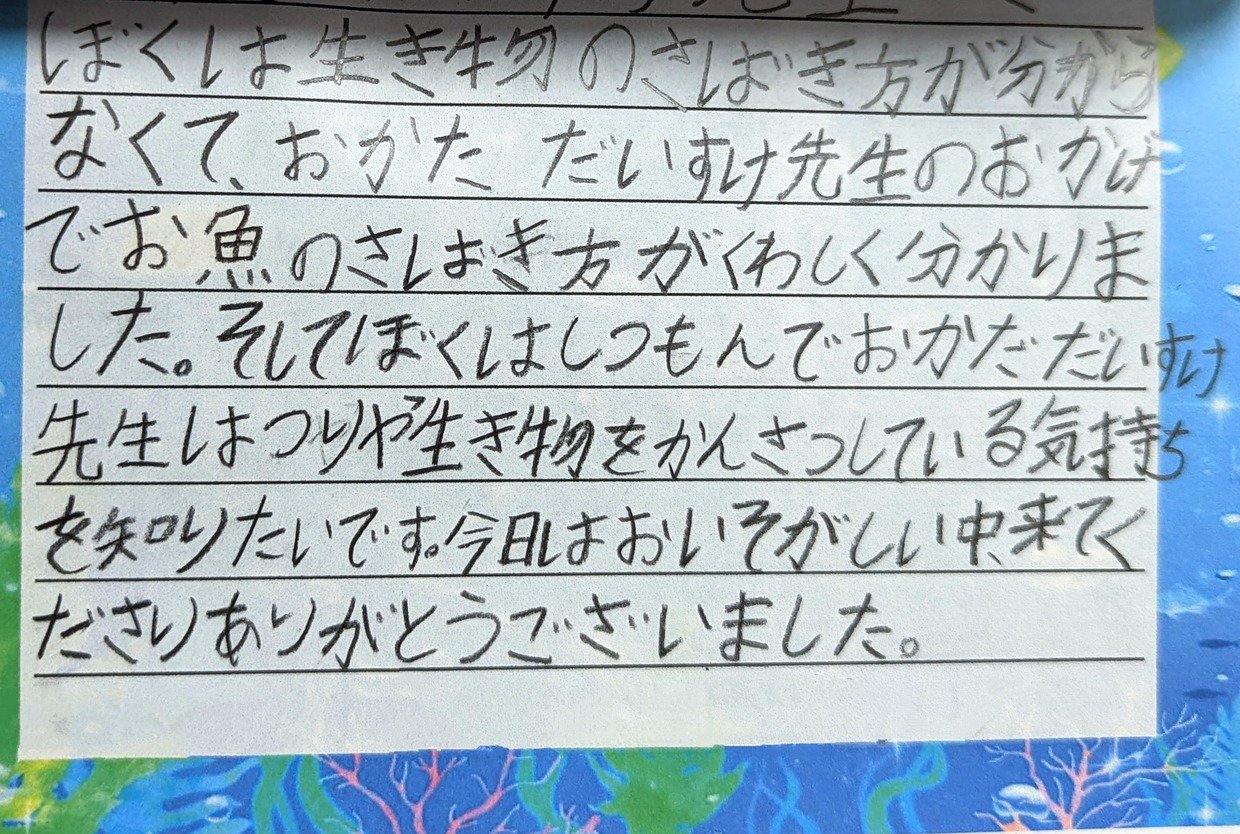 ぼくは生き物のさばき方が分から
なくて、おかた だいすけ先生のおかげ
でお魚のさばき方がくわしく分かりま
した。そしてぼくはしつもんでおかただいすけ
先生はつりや生き物をかんさつしている気持ち
を知りたいです。今日はおいそがしい中、来てく
ださりありがとうございました。